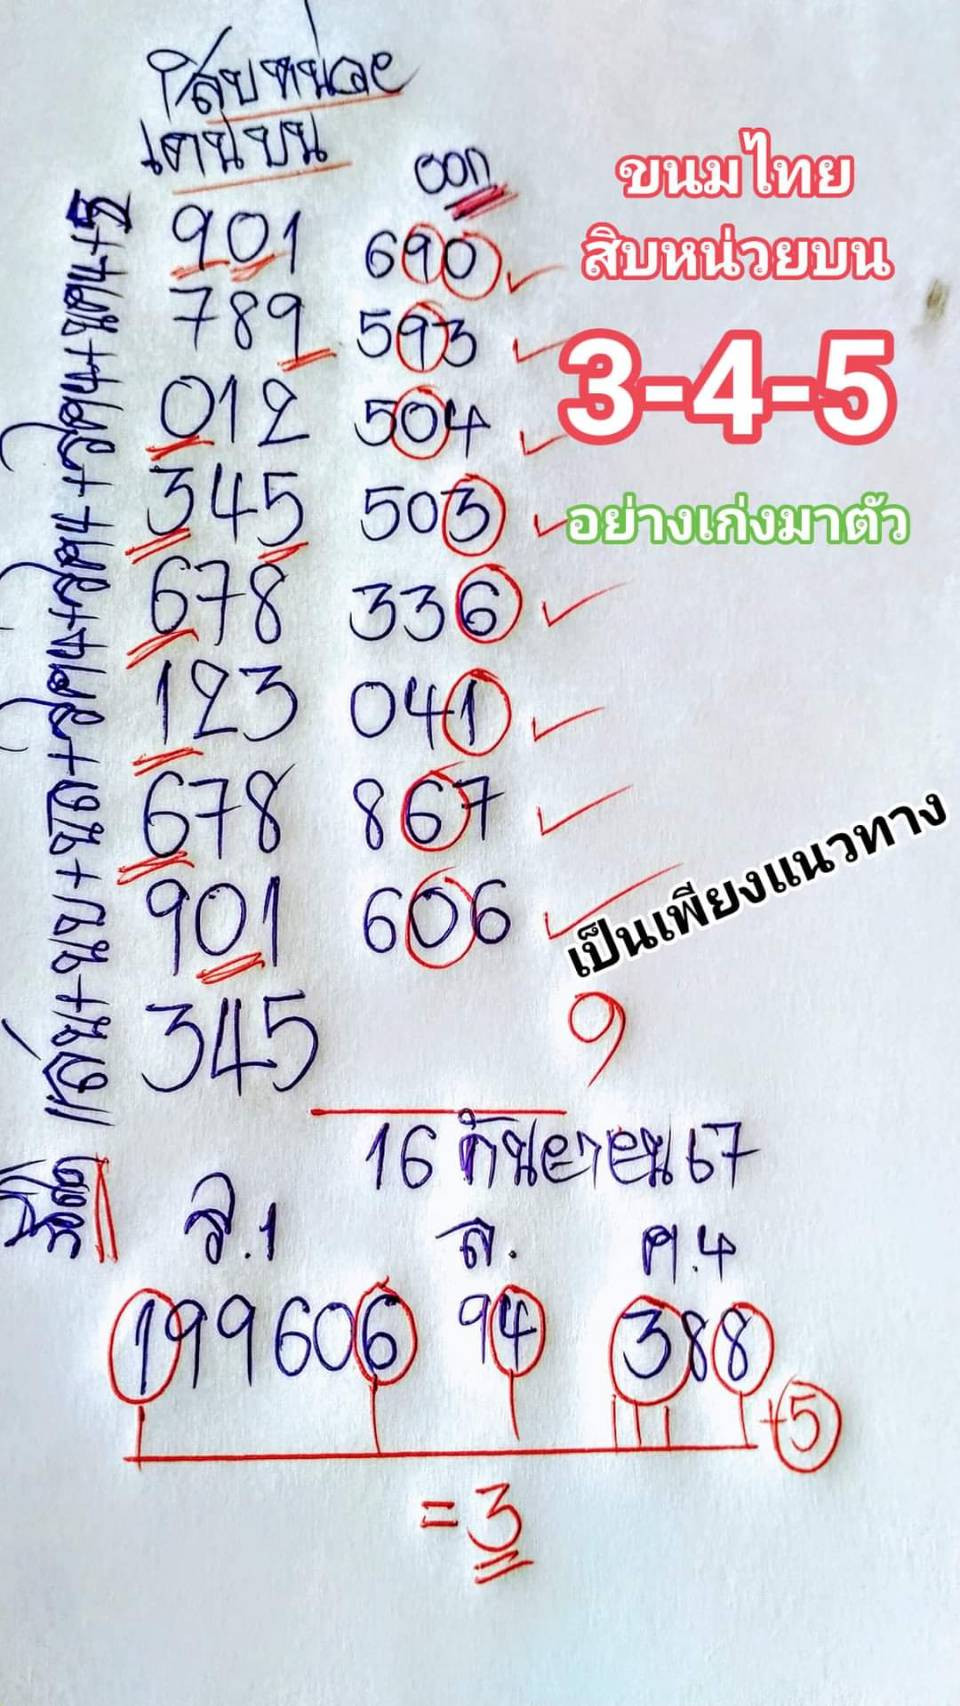 สิบหน่วย
เด่นบน
ออก
901 690
789 593
012 504
345 503
678 336
123 041
678 867
901 606
345
9
ขนมไทย
สิบหน่วยบน
3-4-5
อย่างเก่งมาตัว
เป็นเพียงแนวทาง
16 กันยายน 67
ร.1 ล. ต.4
199606 94 388
+5
=3